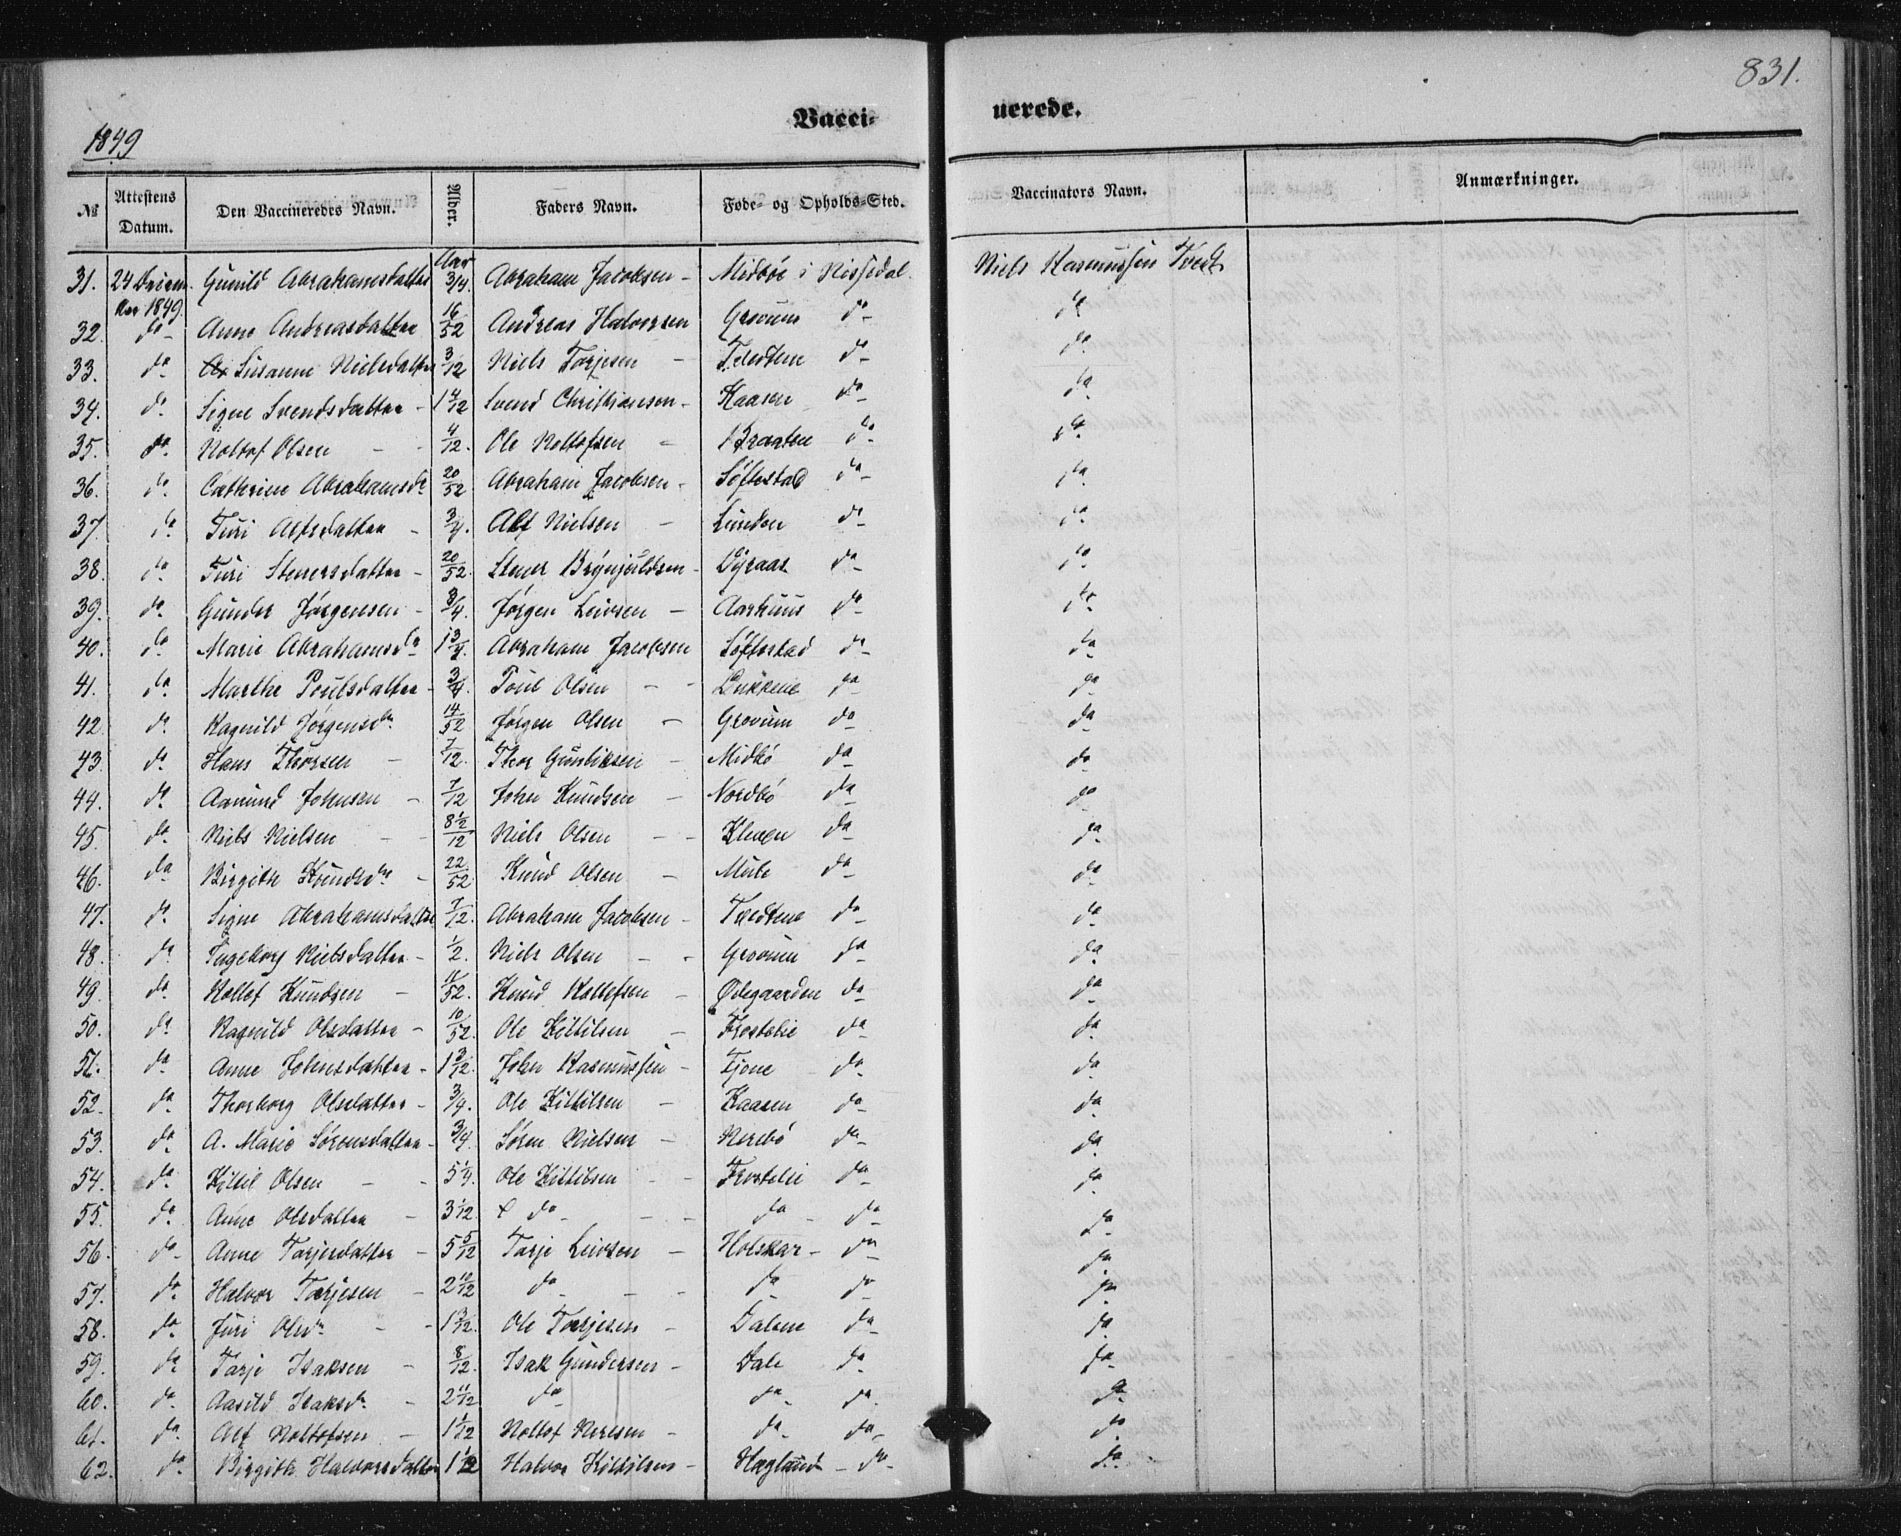 831.
Vacci- nerede.
1849
№ Attestens Datum. Den Vaccineredes Navn. Alder. Faders Navn. Føde- og Opholds-Sted. Vaccinators Navn. Anmærkninger.
Aar
31. 24 Decem- Gunild Abrahamsdatter 3/4. Abraham Jacobsen - Midbøe i Nissedal. Niels Rasmussen Tvedt
ber 1849.
32. do Anne Andreasdatter 16/52 Andreas Halvorsen Grovum do do
33. do Susanne Nielsdatter 3/12 Niels Torjesen - Tvedten do do
34. do Signe Svendsdatter - 1 4/12 Svend Christiansen - Kaasen do do
35. do Noltof Olsen - - 4/12. Ole Noltofsen - Braaten do do
36. do Cathrine Abrahamsdr 20/52 Abraham Jacobsen - Søftestad do do
37. do Turi Alfsdatter - 3/4. Alf Nielsen - Lunden do do
38. do Turi Stenersdatter - 20/52. Stener Brynjuldsen - Dyraas do do
39. do Gunder Jørgensen - 3/4. Jørgen Leivsen - Aarhuus do do
40. do Marie Abrahamsdr 1 3/4. Abraham Jacobsen Søftestad do do
41. do Marthe Poulsdatter - 3/4. Poul Olsen - - do do
42. do Ragnild Jørgensdr 14/52 Jørgen Olsen - Grovum do do
43. do Hans Thorsen - 7/12. Thor Gunliksen - Midbø do do
44. do Aamund Johnsen - 7/12 John Knudsen - Nordbø do do
45. do Niels Nielsen - - 8½/12 Niels Olsen - - Kleven do do
46. do Birgithe Knudsdr - 22/52. Knud Olsen - Mule do do
47. do Signe Abrahamsdatter 7/12. Abraham Jacobsen - Tvedtene do do
48. do Ingeborg Nielsdatter - 1/2. Niels Olsen - - Grovum do do
49. do Rollef Knudsen - 11/52. Knud Rollefsen - Ødegaarden do do
50. do Ragnild Olsdatter - 10/52. Ole Kittilsen - Frostelie do do
51. do Anne Johnsdatter - 1 3/12. John Rasmussen - Fjone do do
52. do Thorborg Olsdatter - 3/4. Ole Kittilsen - Kaasen do do
53. do A. Marie Sørensdatter - 3/4 Søren Nielsen - Nerebø do do
54. do Kittil Olsen - - 5 1/4. Ole Kittilsen - - Frostelie do do
55. do Anne Olsdatter - 3 1/12. do - - do - do do
56. do Anne Tarjesdatter - 5 5/12 Tarje Leivsen - Holskar - do do
57. do Halvor Tarjesen - 2 10/12 do - - do do do
58. do Juri Olsdr - - 1 3/12. Ole Tarjesen - Dalene do do
59. do Tarje Isaksen - 8/12. Isak Gundersen - Dale do do
60. do Aasild Isaksdr - 2 11/12 do do do do
61. do Alf Noltofsen - 1 1/12 Noltof Neresen - do do do
62. do Birgithe Halvorsdatter 1 1/2 Halvor Kittilsen - Haglund - do do